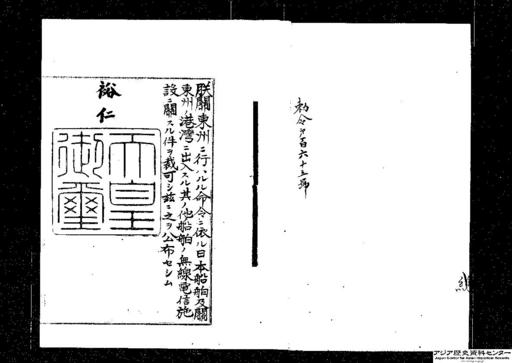 勅令第百六十五號
朕關東州ニ行ハルル命令ニ依ル日本船舶及關
東州ノ港灣ニ出入スル其ノ他船舶ノ無線電信施
設ニ關スル件ヲ裁可シ玆ニ之ヲ公布セシム
裕仁
天皇
御璽
アジア歴史資料センター
Japan Center for Asian Historical Records